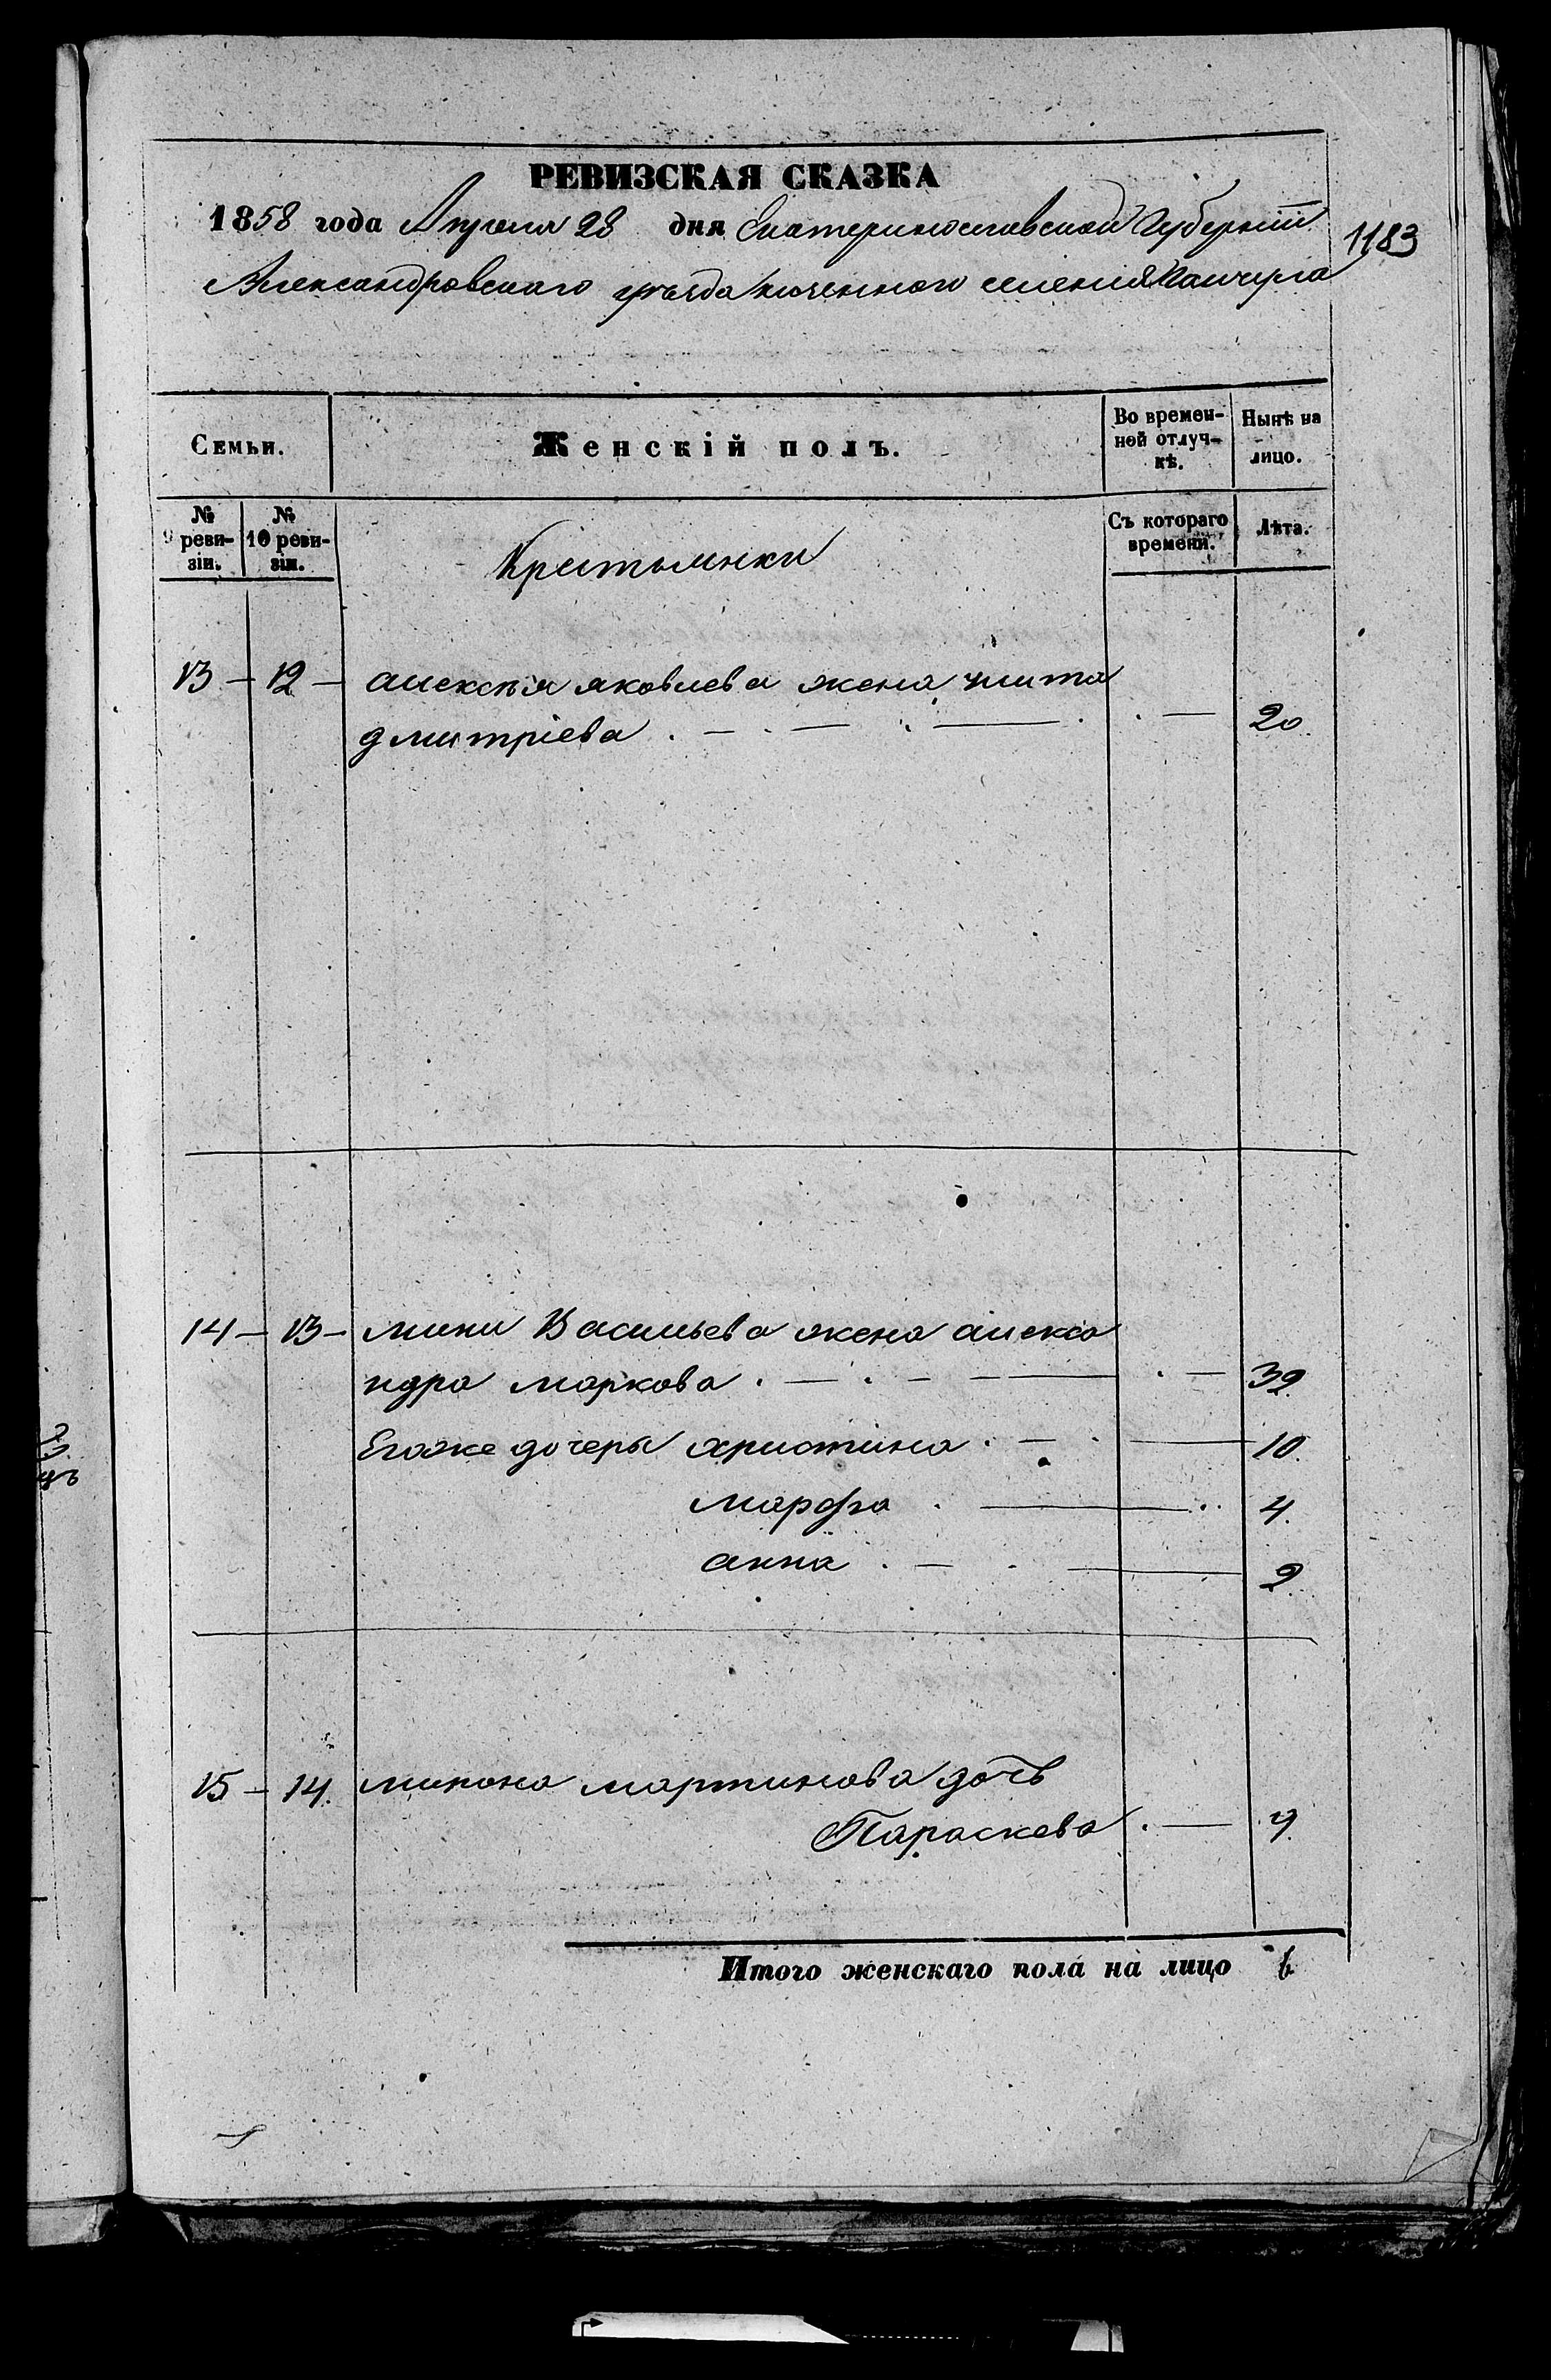 РЕВИЗСКАЯ СКАЗКА
1858 года Апреля 28 дня Екатеринославской Губерніи
1183
Александровскаго уѣзда казенного селенія
Семьи.
Женскій полъ.
Во времен-
ной отлуч-
кѣ.
Нынѣ на
лицо.
№
9 реви-
зіи.
№
10 реви-
зіи.
Крестьянки
Съ котораго
времени.
Лѣта.
13 — 12 — яковлева жена
дмитріева . — . — . — . . — 20.
14 — 13 — Васильева жена алекса
ндра маркова . — . — — . — 39.
Егоже дочеры христина . — . — 10.
марфа . — . . 4.
анна . — . — 2.
15 — 14. мартинова дочь
Параскева . —
Итого женскаго пола на лицо 6